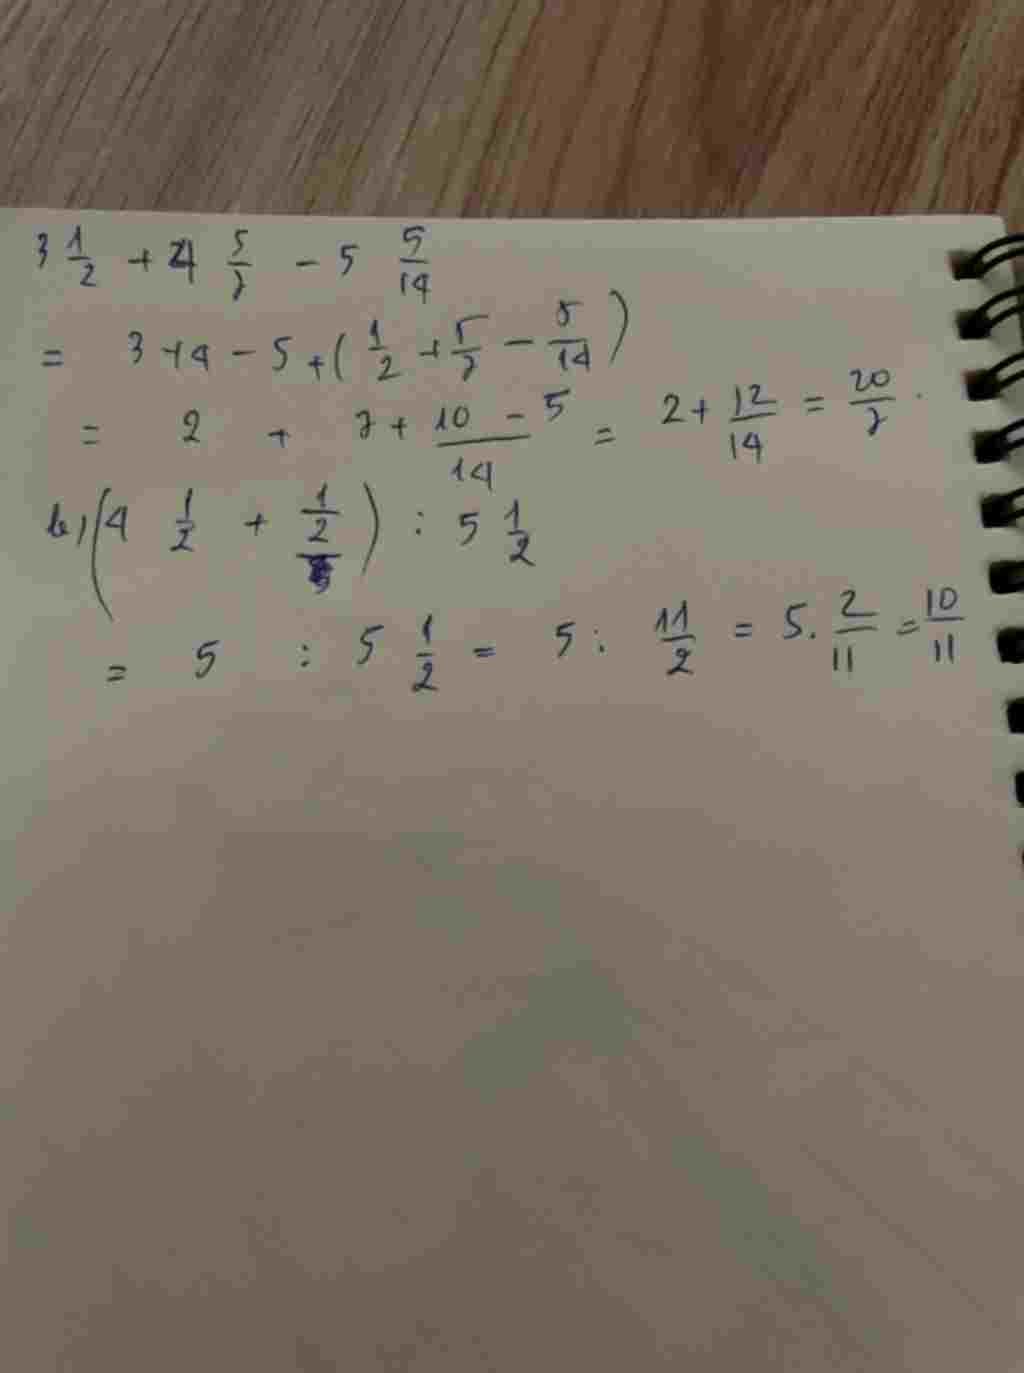 3 1/2 + 4 5/7 - 5 5/14
= 3 + 4 - 5 + ( 1/2 + 5/7 - 5/14 )
= 2 + 7 + 10 - 5 / 14 = 2 + 12/14 = 20/7 .
b) ( 4 1/2 + 1/2 ) : 5 1/2
= 5 : 5 1/2 = 5 : 11/2 = 5 . 2/11 = 10/11